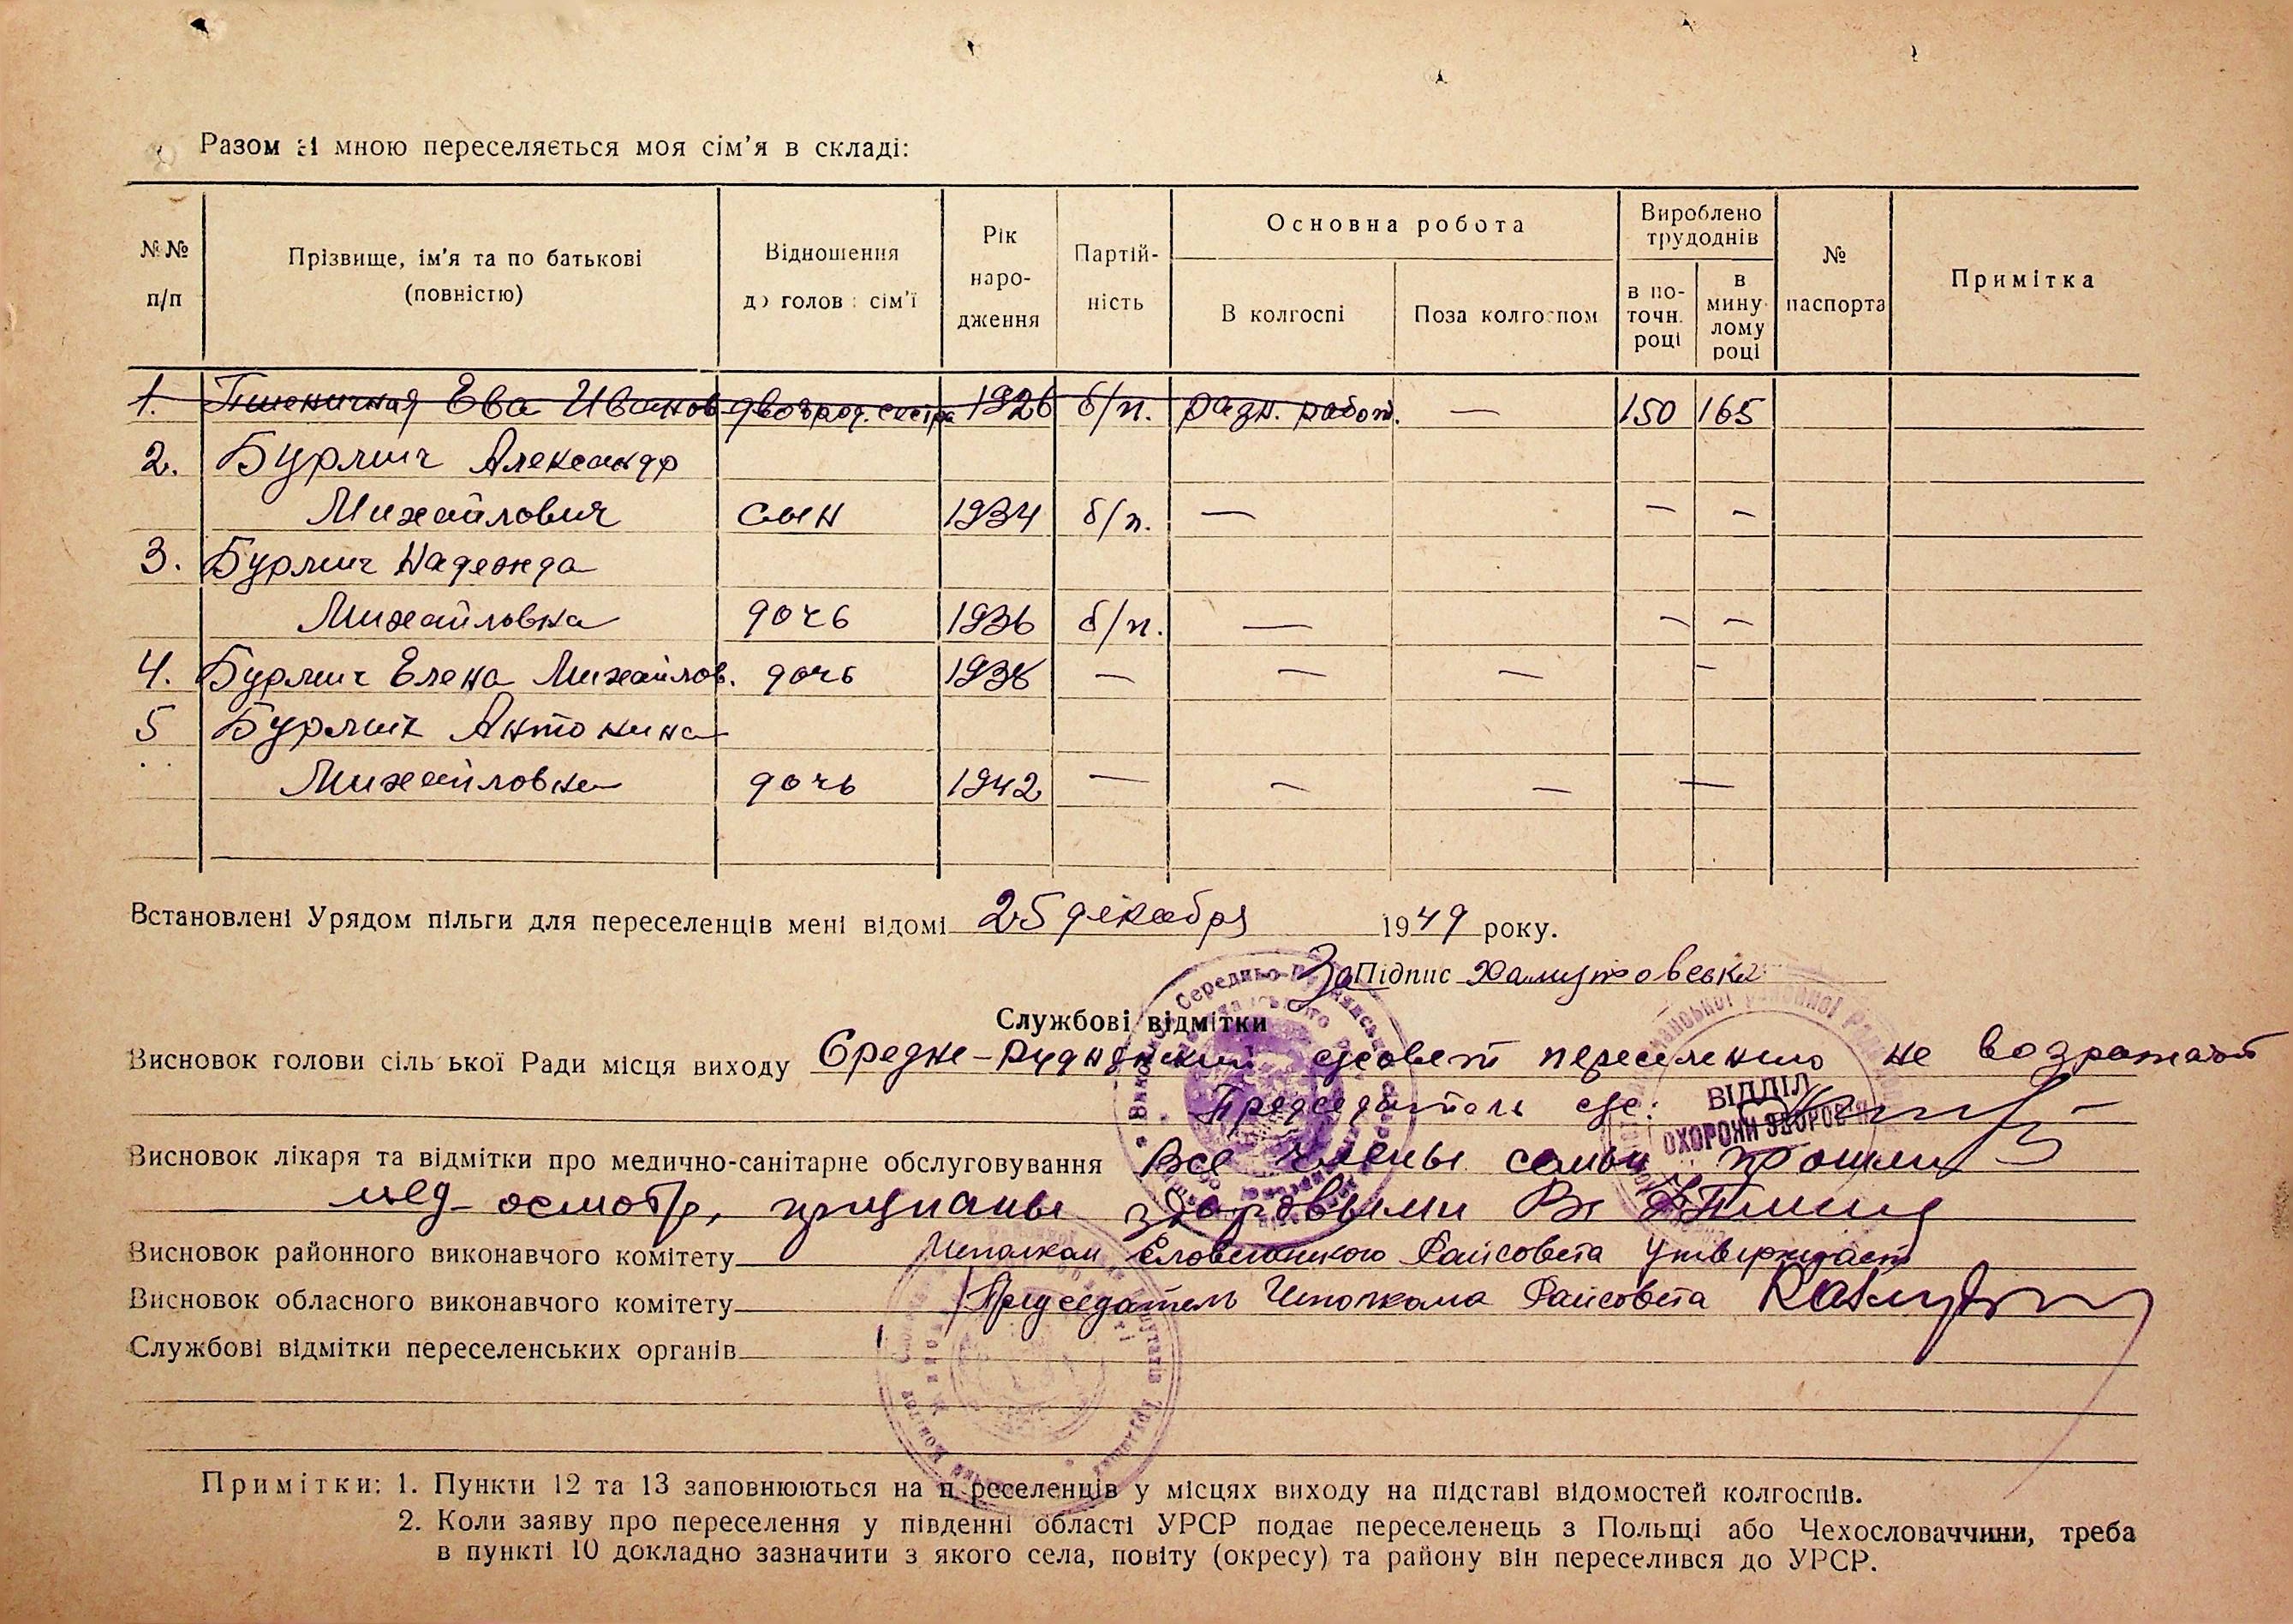 Разом зі мною переселяється моя сім'я в складі:
№№ п/п
Прізвище, ім'я та по батькові (повністю)
Відношення до голови сім'ї
Рік народження
Партійність
Основна робота
В колгоспі
Поза колгоспом
Вироблено трудоднів
в поточн. році
в минулому році
№ паспорта
Примітка
1. Пшеничная Ева Иванов двоюрод. сестра 1926 б/п. разн. работ. — 150 165
2. Бурлич Александр
Михайлович сын 1934 б/п. — — —
3. Бурлич Надежда
Михайловна дочь 1936 б/п. — — —
4. Бурлич Елена Михайлов. дочь 1938 — — — —
5 Бурлич Антонина
Михайловна дочь 1942 — — — —
Встановлені Урядом пільги для переселенців мені відомі 25 декабря 1949 року.
За Підпис
Службові відмітки
Висновок голови сільської Ради місця виходу Средне-Руднянский с/совет переселению не возражает
Председатель с/с:
ВІДДІЛ
ОХОРОНИ ЗДОРОВ'Я
Висновок лікаря та відмітки про медично-санітарне обслуговування Все члены семьи прошли
мед-осмотр, признаны здоровыми
Висновок районного виконавчого комітету Исполком Словечанского Райсовета утверждает
Висновок обласного виконавчого комітету Председатель Исполкома Райсовета
Службові відмітки переселенських органів
Примітки: 1. Пункти 12 та 13 заповнюються на переселенців у місцях виходу на підставі відомостей колгоспів.
2. Коли заяву про переселення у південні області УРСР подає переселенець з Польщі або Чехословаччини, треба
в пункті 10 докладно зазначити з якого села, повіту (окресу) та району він переселився до УРСР.